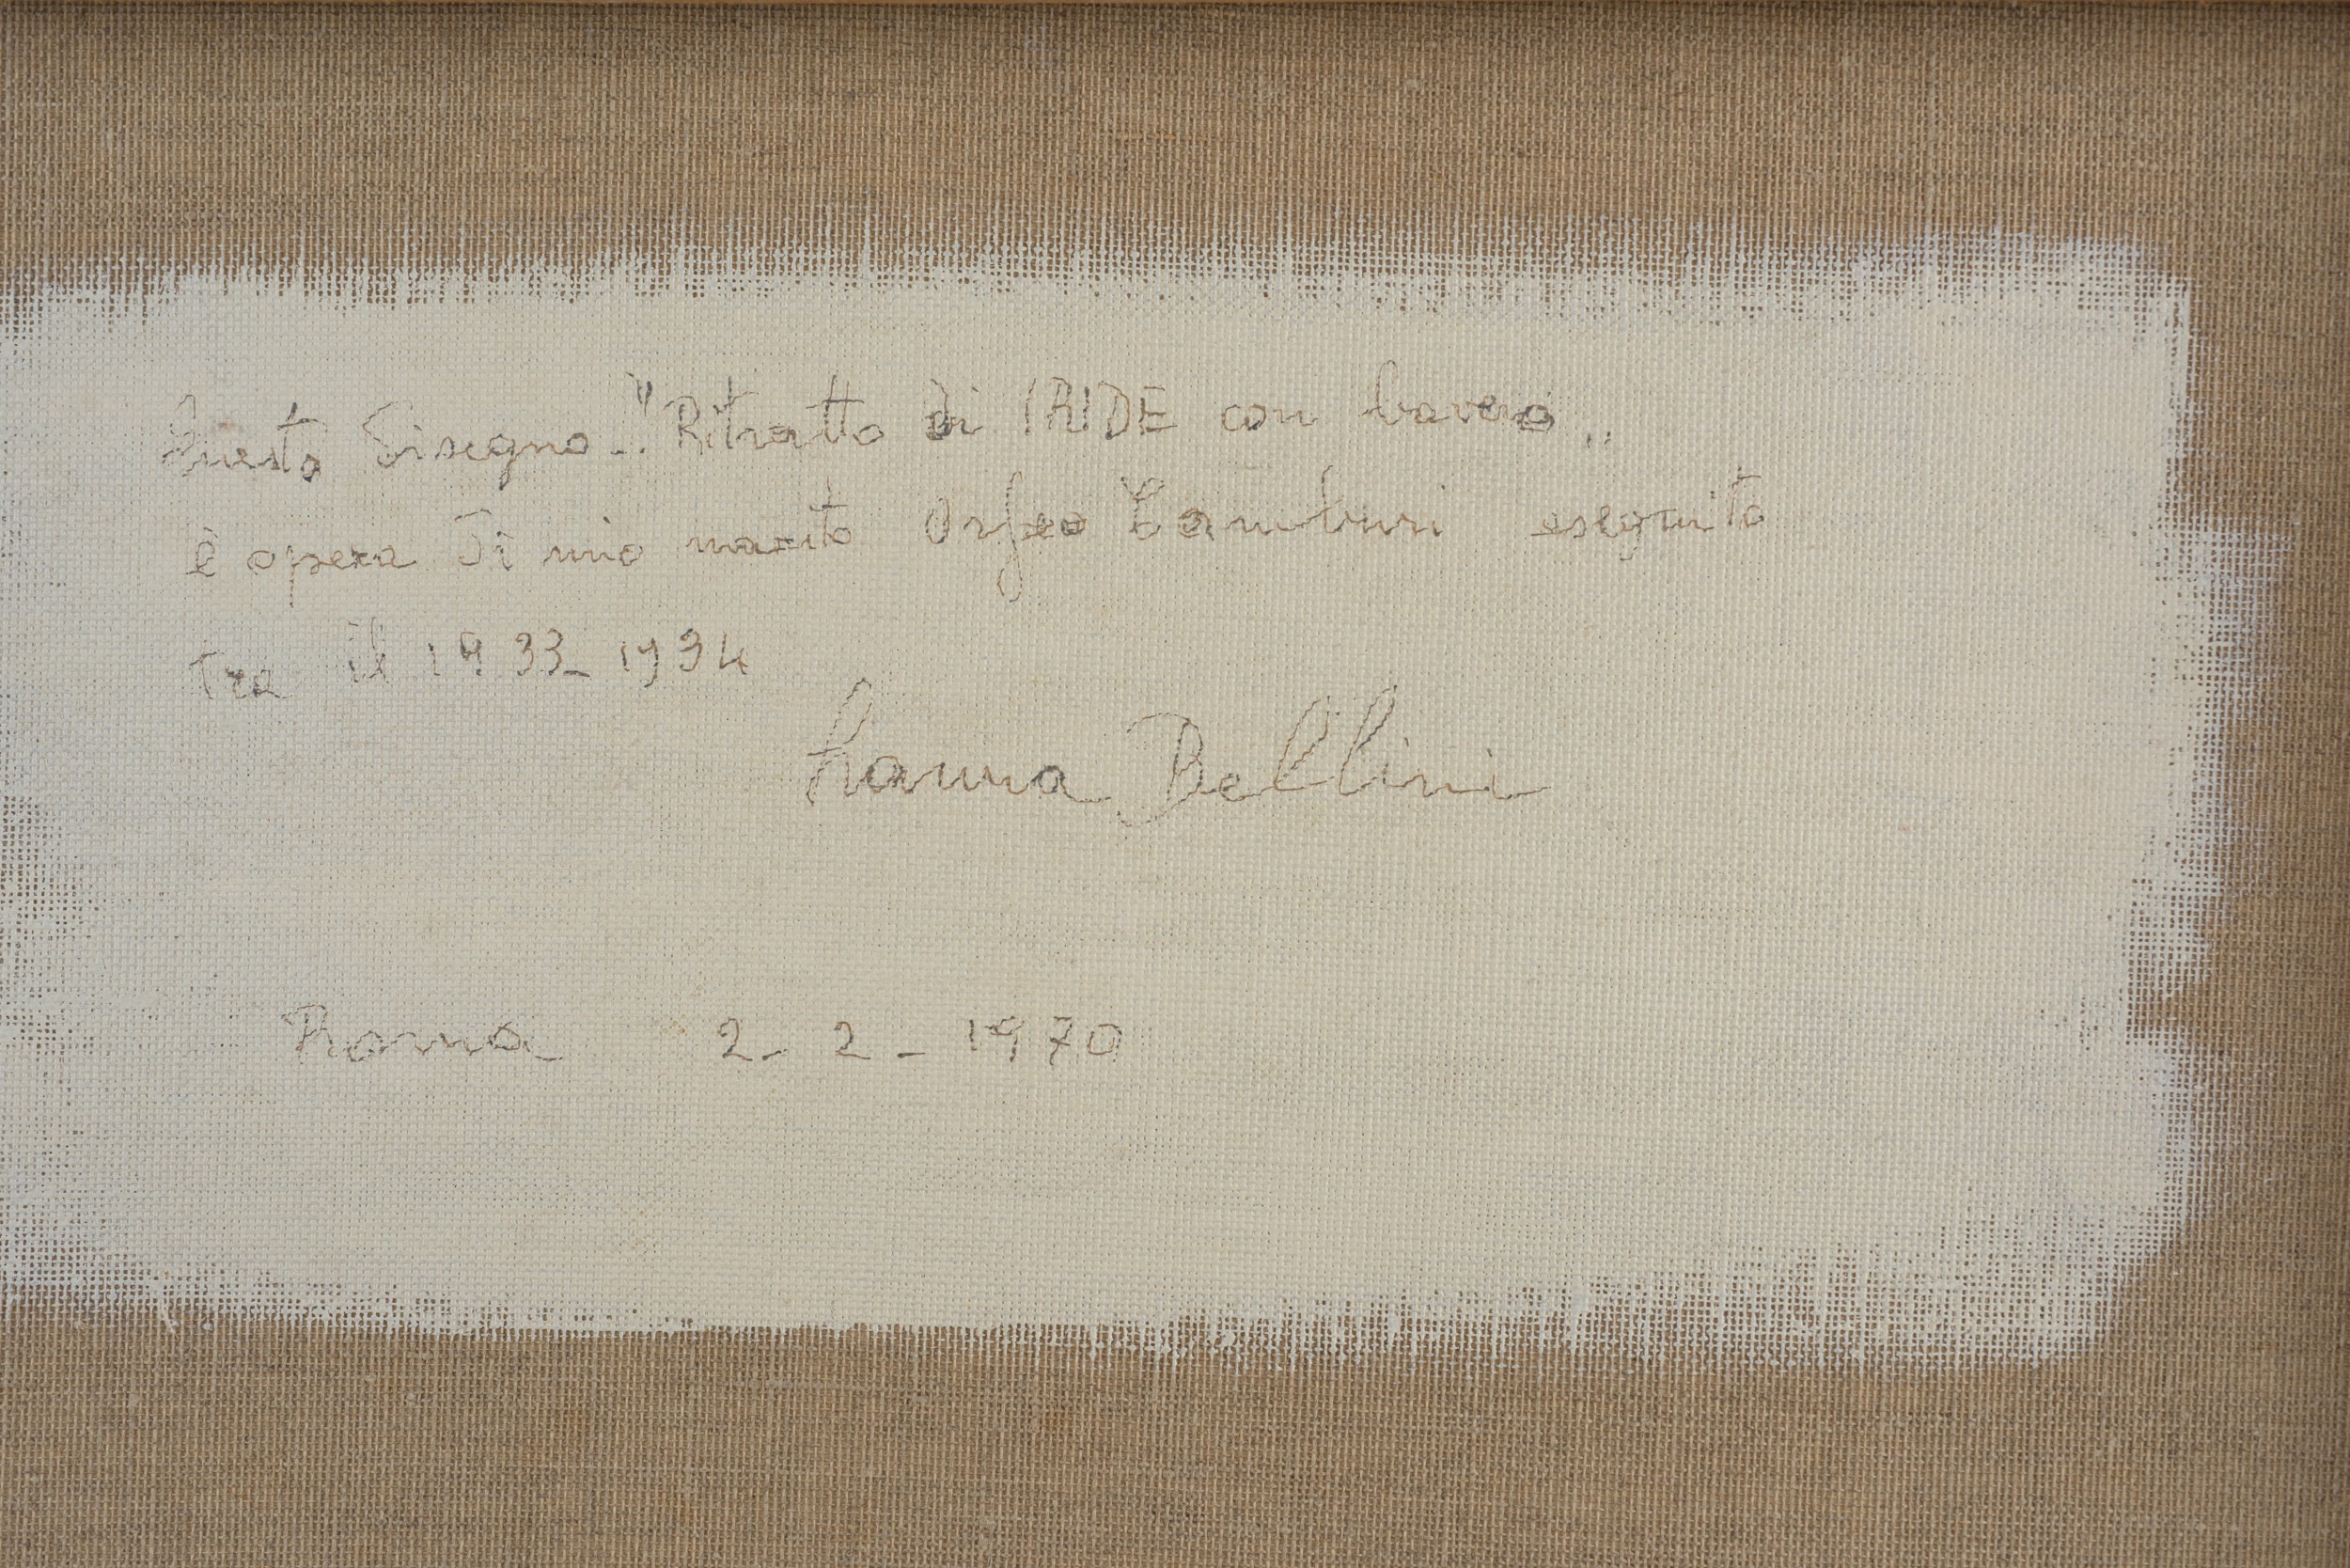 Questo disegno.. "Ritratto di IRIDE con bavero„
è opera di mio marito Orfeo Tamburi eseguito
tra il 1933-1934
Lanna Bellini
Roma 2-2-1970